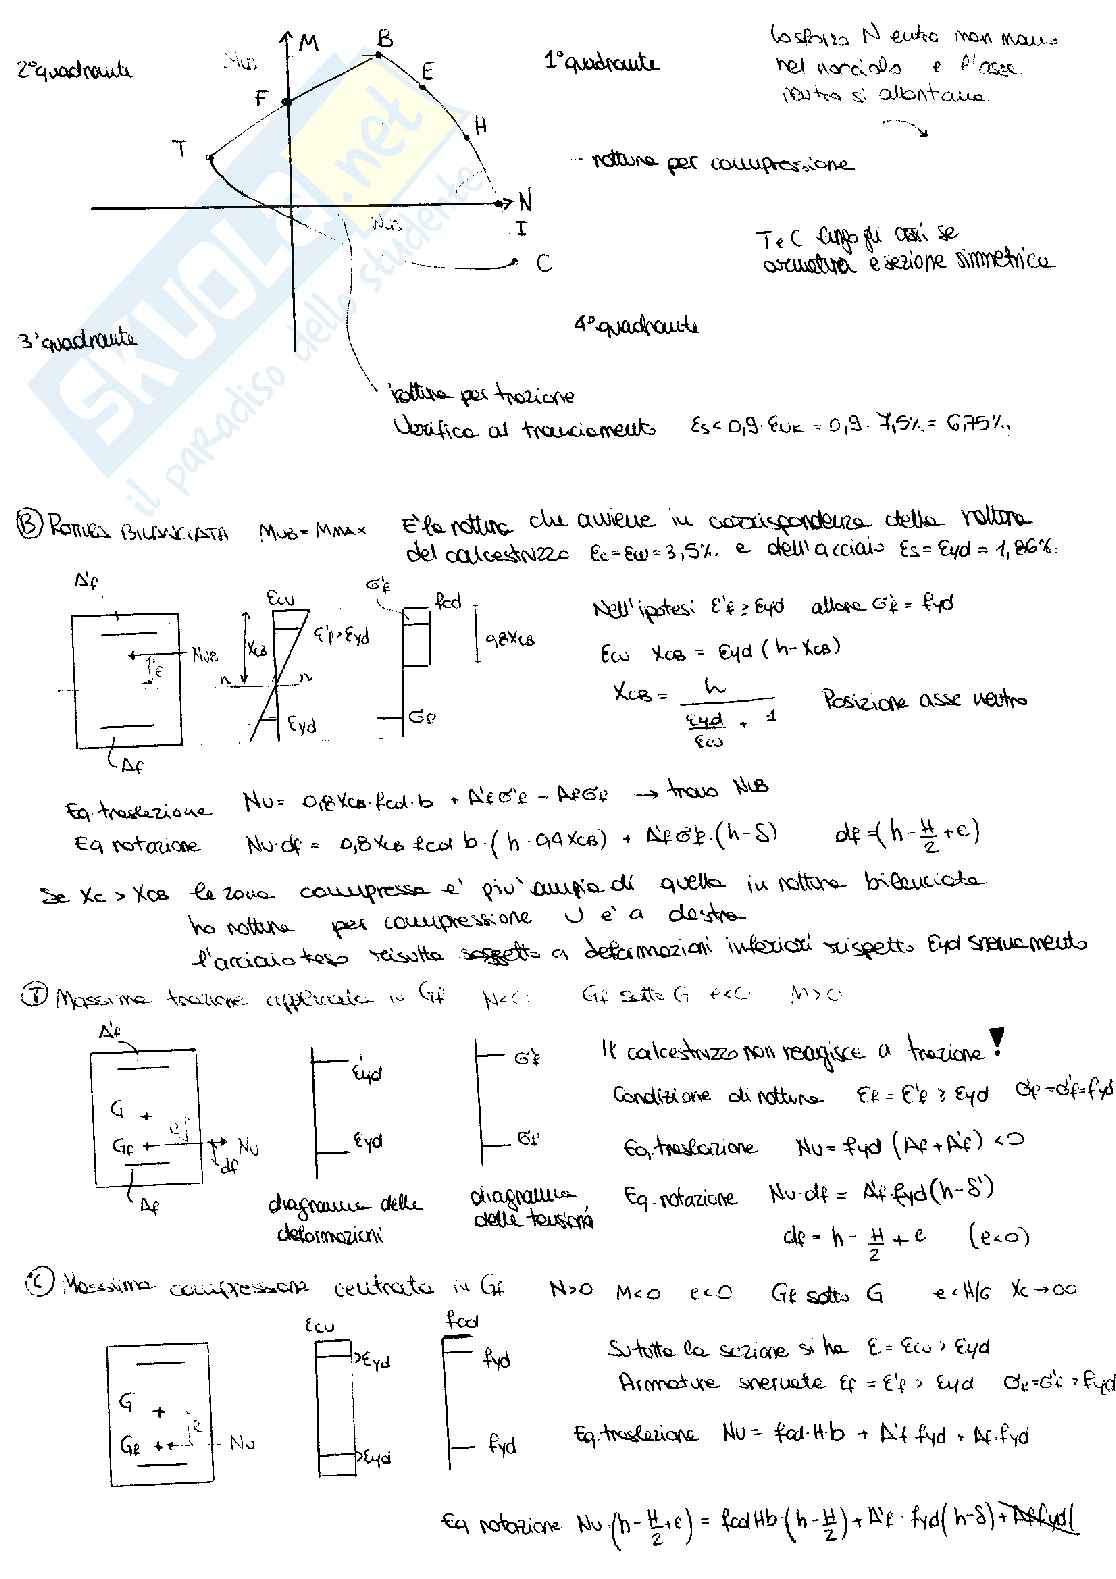 M
B
2° quadrante
MuB
1° quadrante
Lo sforzo N entra man mano
nel nocciolo e l'asse
neutro si allontana
F
E
T
H
rottura per compressione
N
I
NuB
C
T e C lungo gli assi se
armatura e sezione simmetrica
3° quadrante
4° quadrante
SKUOLA.net
il paradiso dello studente
rottura per trazione
Verifica al tranciamento εs < 0,9·εuk = 0,9·7,5% = 6,75%
Ⓑ ROTTURA BILANCIATA MuB = MMAX È la rottura che avviene in corrispondenza della rottura
del calcestruzzo εc = εcu = 3,5‰ e dell'acciaio εs = εyd = 1,86‰
A'f
εcu
σ'f
fcd
ε'f > εyd
0,8XcB
XcB
NuB
e
n n
εyd
σf
Af
Nell'ipotesi ε'f ≥ εyd allora σ'f = fyd
εcu XcB = εyd (h - XcB)
XcB = h / (εyd/εcu + 1) Posizione asse neutro
Eq. traslazione Nu = 0,8XcB·fcd·b + A'f σ'f - Af σf → trovo NuB
Eq rotazione Nu·df = 0,8XcB fcd b·(h - 0,4XcB) + A'f σ'f·(h - δ) df = (h - H/2 + e)
Se Xc > XcB la zona compressa e' piu' ampia di quella in rottura bilanciata
ho rottura per compressione U e' a destra
l'acciaio teso risulta soggetto a deformazioni inferiori rispetto εyd snervamento
Ⓣ Massima trazione applicata in Gf N<0 Gf sotto G e<0 M>0
A'f
εyd
σ'f
G
Gf
Nu
df
εyd
σf
Af
diagramma delle
deformazioni
diagramma
delle tensioni
Il calcestruzzo non reagisce a trazione!
Condizione di rottura εf = ε'f ≥ εyd σf = σ'f = fyd
Eq. traslazione Nu = fyd (Af + A'f) < 0
Eq. rotazione Nu·df = A'f·fyd (h - δ')
df = h - H/2 + e (e<0)
Ⓒ Massima compressione centrata in Gf N>0 M<0 e<0 Gf sotto G e < H/6 Xc → ∞
εcu
fcd
>εyd
fyd
G
Gf
e
Nu
>εyd
fyd
Su tutta la sezione si ha ε = εcu > εyd
Armature snervate εf = ε'f > εyd σf = σ'f > fyd
Eq. traslazione Nu = fcd·H·b + A'f fyd + Af·fyd
Eq rotazione Nu·(h - H/2 + e) = fcd H b·(h - H/2) + A'f·fyd (h - δ) + Af fyd (